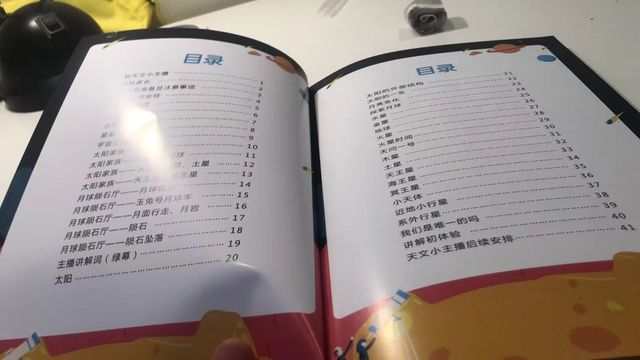 目录
天文小主播 1
2
及注意事项 3
4
5
6
7
8
9
太阳家族 10
太阳家族 球 11
太阳家族 土星 12
太阳家族—— 王星 13
月球陨石厅——月球 14
月球陨石厅——玉兔号月球车 15
月球陨石厅——月面行走、月岩 16
月球陨石厅——陨石 17
月球陨石厅——陨石坠落 18
主播讲解词（绿幕） 19
太阳 20
目录
太阳的外部结构 21
太阳的一生 22
月亮文化 23
探索月球 24
水星 25
金星 26
地球 27
火星 28
火星时间 29
天问一号 30
木星 31
土星 32
天王星 33
海王星 34
冥王星 35
小天体 36
近地小行星 37
系外行星 38
我们是唯一的吗 39
讲解初体验 40
天文小主播后续安排 41